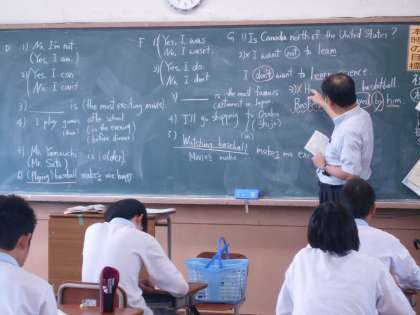 D 1) { No, I'm not.
(Yes, I am.)
2) { Yes, I can
No, I can't
3) ______ is (the most exciting movie).
4) I play games after school
(in the evening)
(before dinner)
5) Mr. Yamauchi
(Mr. Sato) is (older).
6) (Playing) baseball makes me happy
F 1) { Yes, I was
No, I wasn't.
2) { Yes, I do.
No, I don't
V ______ is the most famous
cartoonist in Japan
4) I'll go shopping to Osaka
5) Watching baseball makes me
Movies make
G 1) Is Canada north of the United States?
2) x I want not to learn
I don't want to learn science.
3) x H basketball.
by him.
本時の目標